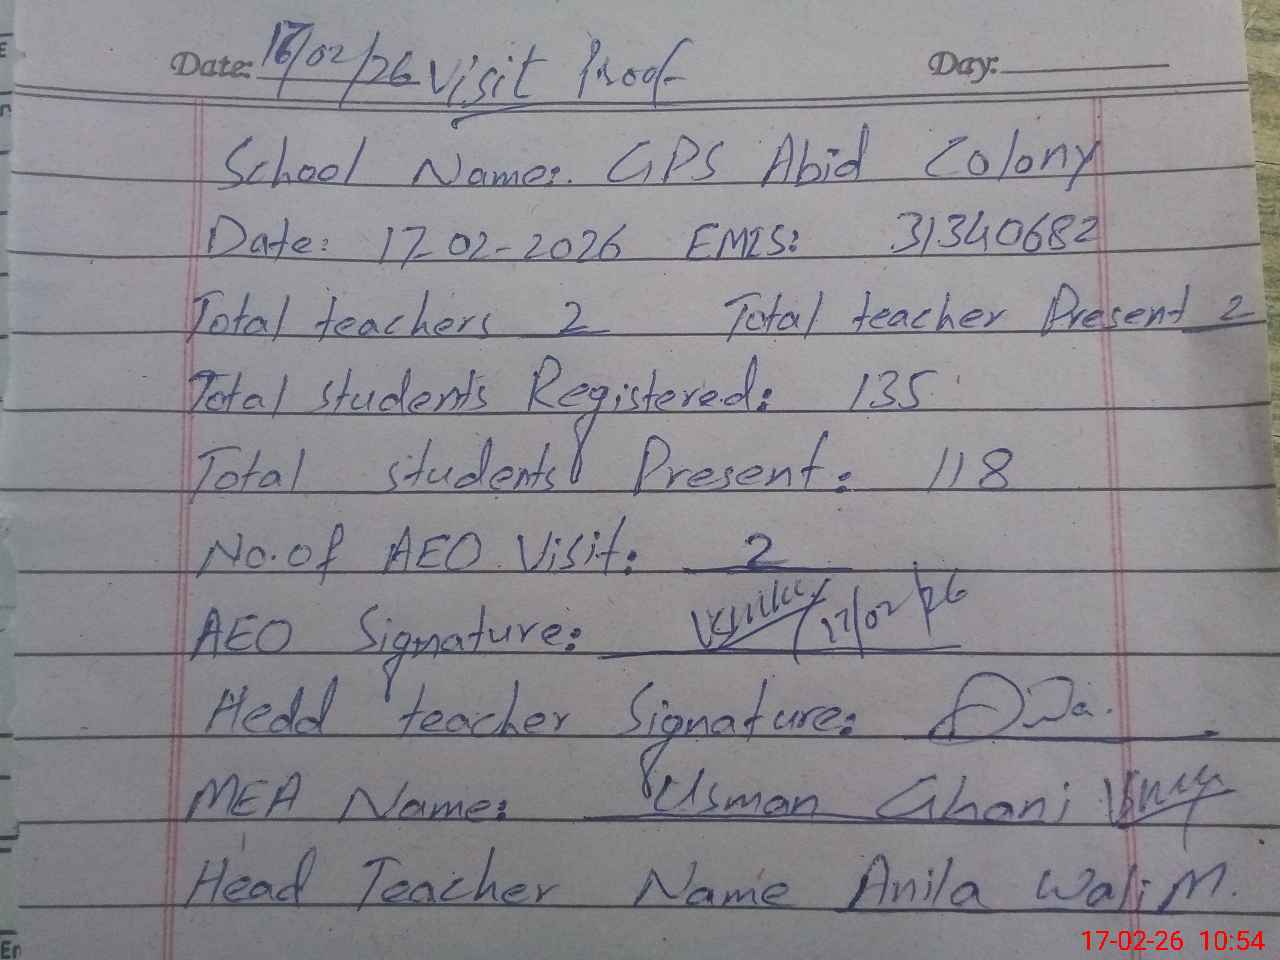 Date: 17/02/26 Visit Proof Day:
School Name: GPS Abid Colony
Date: 17-02-2026 EMIS: 31340682
Total teachers 2 Total teacher Present 2
Total students Registered: 135
Total students Present: 118
No. of AEO Visit: 2
AEO Signature: 17/02/26
Hedd teacher Signature:
MEA Name: Usman Ghani
Head Teacher Name Anila Wali M.
17-02-26 10:54